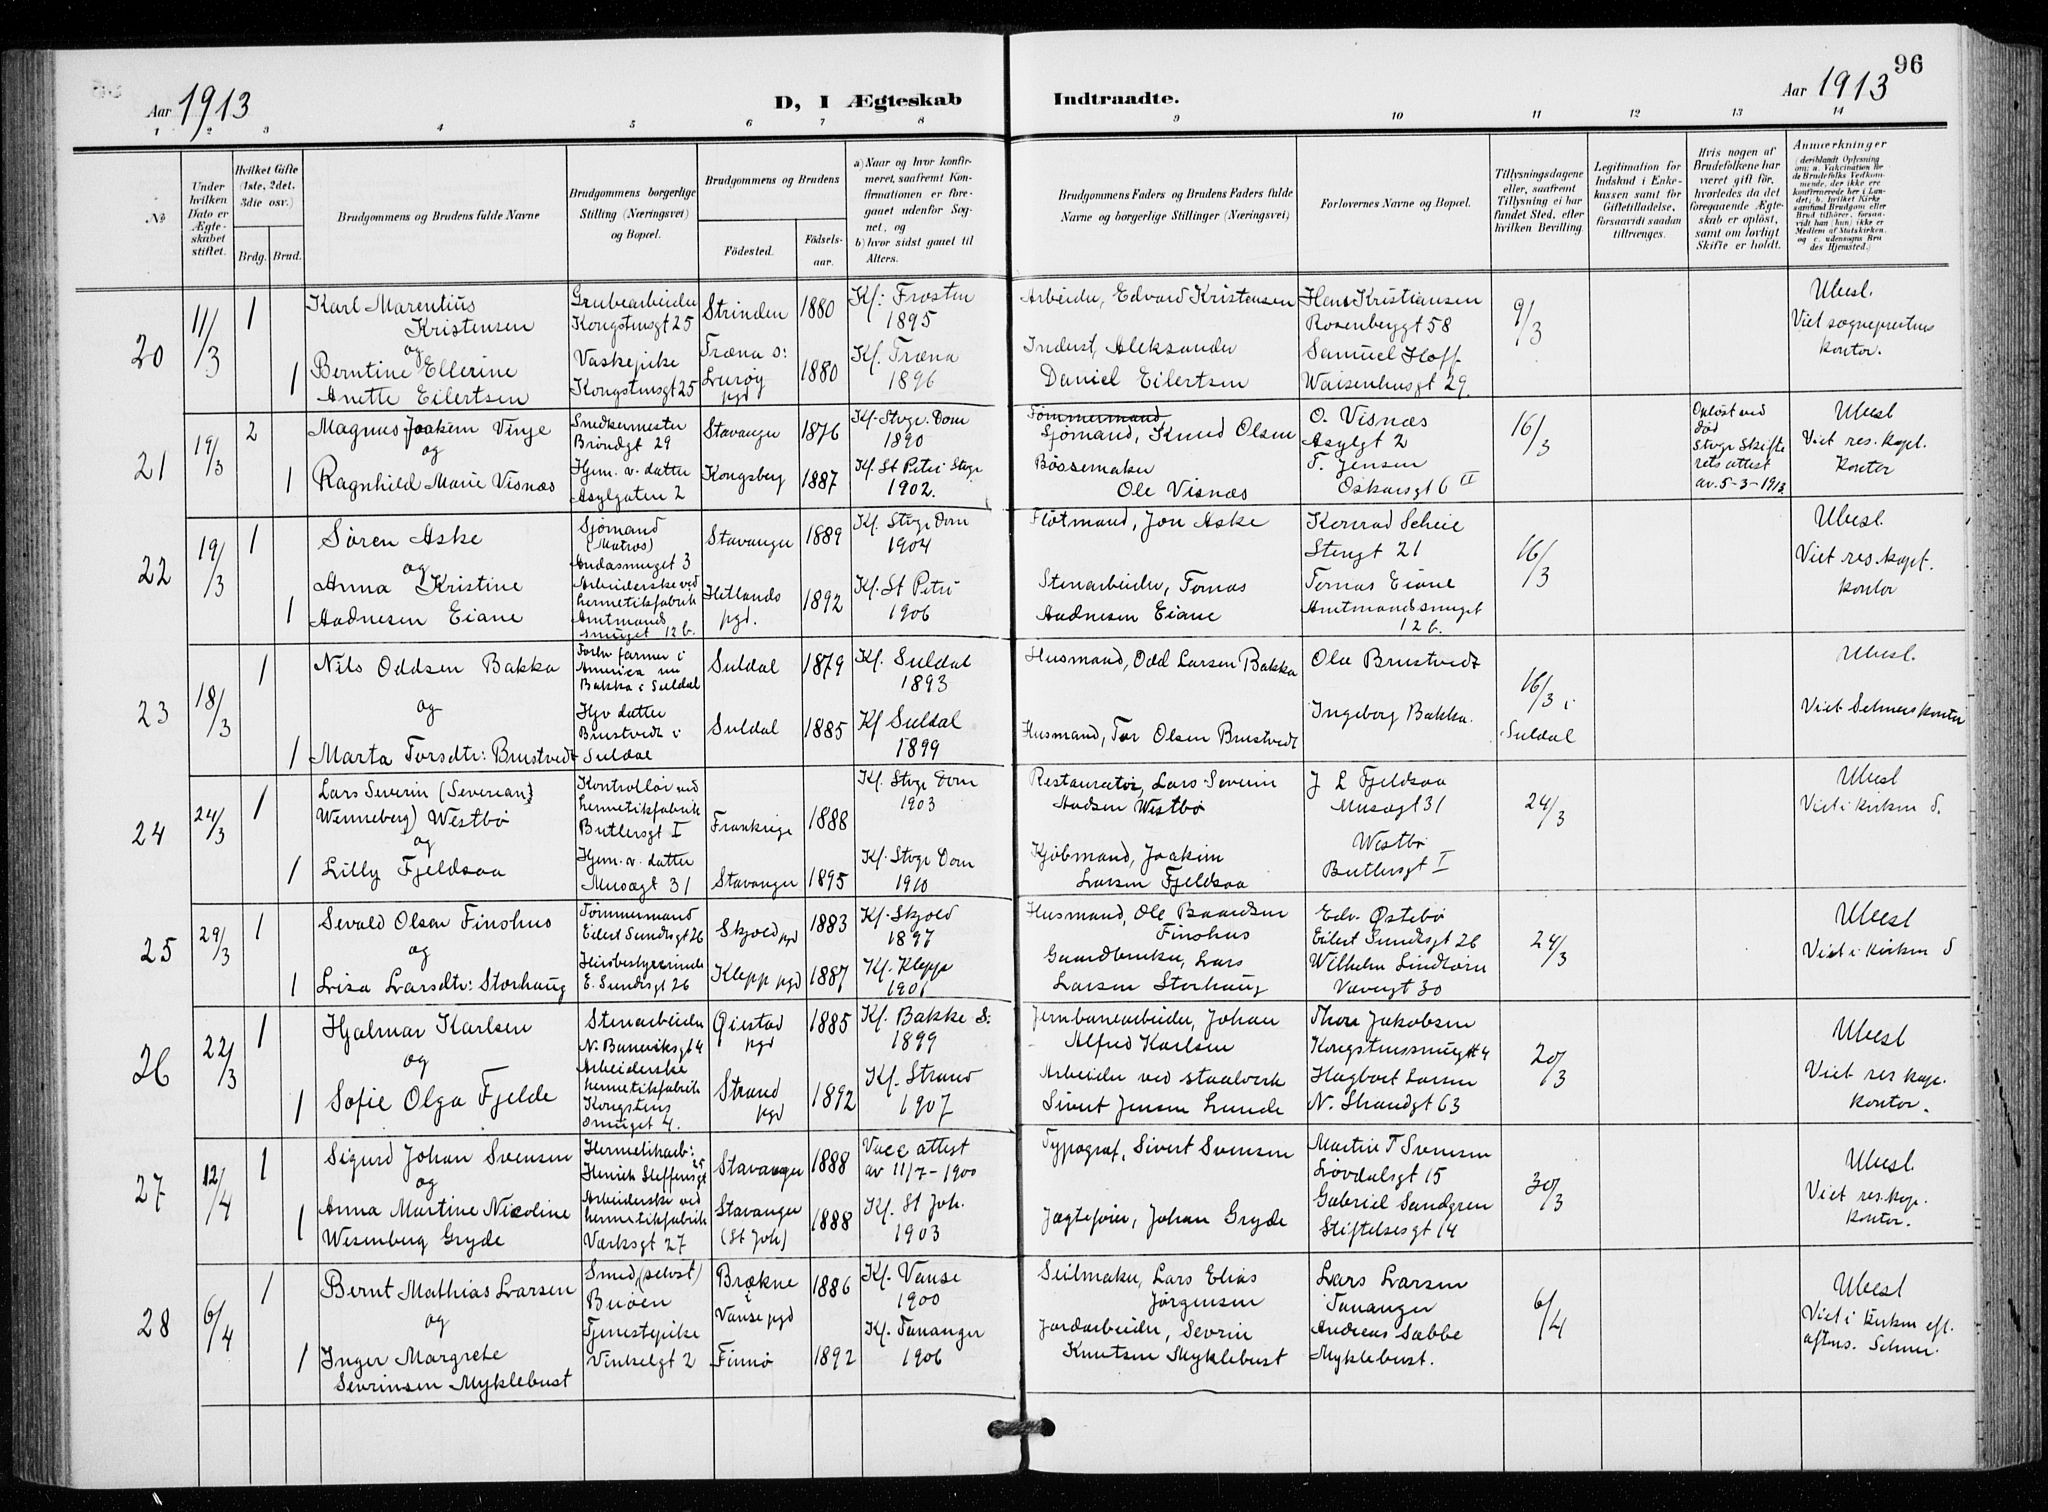 96
Aar 1913
D, I Ægteskab Indtraadte.
Aar 1913
1 2 3 4 5 6 7 8 9 10 11 12 13 14
No
Under hvilken Dato er Ægteskabet stiftet.
Hvilket Gifte (1ste, 2det, 3die osv.)
Brdg. Brud.
Brudgommens og Brudens fulde Navne
Brudgommens borgerlige Stilling (Næringsvei) og Bopæl.
Brudgommens og Brudens
Fødested.
Fødselsaar.
a) Naar og hvor konfirmeret, saafremt Konfirmationen er foregaaet udenfor Sognet, og
b) hvor sidst gaaet til Alters.
Brudgommens Faders og Brudens Faders fulde Navne og borgerlige Stillinger (Næringsvei)
Forlovernes Navne og Bopæl.
Tillysningsdagene eller, saafremt Tillysning ei har fundet Sted, efter hvilken Bevilling.
Legitimation for Indskud i Enkekassen samt for Giftetilladelse, forsaavidt saadan tiltrænges.
Hvis nogen af Brudefolkene har været gift før, hvorledes da det foregaaende Ægteskab er opløst, samt om lovligt Skifte er holdt.
Anmærkninger
20
11/3
1
Karl Marentius
Kristensen
og
1
Berntine Ellerine
Anette Eilertsen
Grubearbeider
Kongstensgt 25
Vaskepike
Kongstensgt 25
Strinden 1880
Træna s:
Lurøy pgd 1880
Kf: Frosten
1895
Kf. Træna
1896
Arbeider, Edvard Kristensen
Inderst, Aleksander
Daniel Eilertsen
Hans Kristiansen
Rosenberggt 58
Samuel Hoff
Waisenhusgt 29
9/3
Ubesl.
Viet sogneprestens
kontor.
21
19/3
2
Magnus Joakim Vinje
og
1
Ragnhild Marie Visnæs
Snedkermester
Brøndgt 29
Hjem. v. datter
Asylgaten 2
Stavanger 1876
Kongsberg 1887
Kf. Stvgr. Dom
1890
Kf. St Petri Stvgr
1902.
Tømmermand
Sjømand, Knud Olsen
Bøssemaker
Ole Visnæs
O. Visnæs
Asylgt 2
T. Jensen
Oskarsgt 6 II
16/3
Opløst ved
død
Stvgr Skifte
rets attest
av 5-3-1913
Ubesl
Viet res. kapl.
kontor
22
19/3
1
Søren Aske
og
1
Anna Kristine
Aadnesen Eiane
Sjømand
(Matros)
Andasmuget 3
Arbeiderske ved
hermetikfabrik
Amtmands
smuget 12 b.
Stavanger 1889
Hetlands
pgd. 1892
Kf. Stvgr Dom
1904
Kf. St Petri
1906
Fløtmand, Jon Aske
Stenarbeider, Tornas
Aadnesen Eiane
Konrad Scheie
Stengt 21
Tornas Eiane
Amtmandssmuget
12 b.
16/3
Ubesl.
Viet res. kapt.
kontor
23
18/3
1
Nils Oddsen Bakka
og
1
Marta Torsdtr: Brustvedt
Forhv farmer i
America nu
Bakka i Suldal
Hjv datter
Brustvedt i
Suldal
Suldal 1879
Suldal 1885
Kf. Suldal
1893
Kf Suldal
1899
Husmand, Odd Larsen Bakka
Husmand, Tor Olsen Brustvedt
Ola Brustvedt
Ingeborg Bakka.
16/3 i
Suldal
Ubesl.
Viet Selmers kontor
24
24/3
1
Lars Severin (Severian)
Wenneberg) Westbø
og
1
Lilly Fjeldsaa
Kontrollør ved
hermetikfabrik
Butlersgt I
Hjem. v. datter
Musægt 31
Frankrige 1888
Stavanger 1895
Kf. Stvgr Dom
1903
Kf. Stvgr Dom
1910
Restauratør, Lars Severin
Aadsen Westbø
Kjøbmand, Joakim
Larsen Fjeldsaa
J L Fjeldsaa
Musægt 31
Westbø
Butlersgt I
24/3
Ubesl
Viet i kirken S.
25
29/3
1
Sevald Olsen Finshus
og
1
Lisa Larsdtr: Storhaug
Tømmermand
Eilert Sundtsgt 26
Husbestyrerinde
E. Sundtsgt 26
Skjold pgd 1883
Klepp pgd 1887
Kf. Skjold
1897
Kf. Klepp
1901
Husmand, Ole Baardsen
Finshus
Gaardbruker, Lars
Larsen Storhaug
Edv. Østebø
Eilert Sundtsgt 26
Wilhelm Lindtorn
Vævergt 30
24/3
Ubesl
Viet i kirken S
26
22/3
1
Hjalmar Karlsen
og
1
Sofie Olga Fjelde
Stenarbeider
N. Baneviksgt 4
Arbeiderske
hermetikfabrik
Kongstens
smuget 4.
Øiestad
pgd 1885
Strand
pgd 1892
Kf. Bakke S.
1899
Kf. Strand
1907
Jernbanearbeider, Johan
Alfred Karlsen
Arbeider ved staalverk
Sivert Jensen Lunde
Thore Jakobsen
Kongstenssmuget 4
Hagbart Larsen
N. Strandgt 63
20/3
Ubesl
Viet res kap.
kontor.
27
12/4
1
Sigurd Johan Svensen
og
1
Anna Martine Nicoline
Wesenberg Gryde
Hermetikarb:
Henrik Steffensgt 25
Arbeiderske ved
hermetikfabrik
Værksgt 27
Stavanger 1888
Stavanger
(St Joh) 1888
Vacc attest
av 11/7-1900
Kf. St Joh.
1903
Typograf, Sivert Svensen
Jægtefører, Johan Gryde
Martin T Svensen
Løvdalsgt 15
Gabriel Sandgren
Stiftelsesgt 14
30/3
Ubesl.
Viet res. kap.
kontor.
28
6/4
1
Bernt Mathias Larsen
og
1
Inger Margrete
Sevrinsen Myklebust
Smed, (selvst)
Buøen
Tjenestepike
Vinkelgt 2
Brækne
i
Vanse pgd 1886
Finnø 1892
Kf. Vanse
1900
Kf. Tananger
1906
Seilmaker, Lars Elias
Jørgensen
Jordarbeider, Sevrin
Knutsen Myklebust
Lars Larsen
Tananger
Andreas Sabbe
Myklebust.
6/4
Ubesl
Viet i kirken eft.
aftns. Selmer.